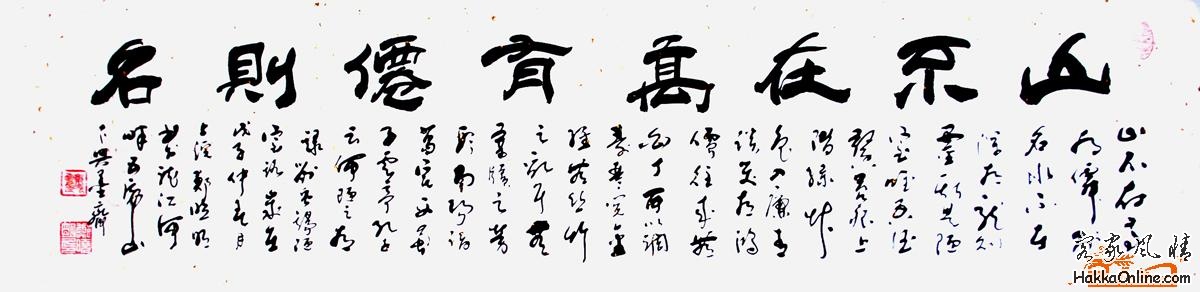 山不在高有僊則名
山不在高
有僊則
名水不在
深有龍則
靈斯是陋
室唯吾德
馨苔痕上
階綠草
色入簾青
談笑有鴻
儒往來無
白丁可以調
素琴閱金
經無絲竹
之亂耳無
案牘之勞
形南陽諸
葛廬西蜀
子雲亭孔子
云何陋之有
錄劉禹錫陋
室銘歲在
戊子仲春月
上浣鄭
書於江河
畔西山
下興墨齋
客家風情
HakkaOnline.com